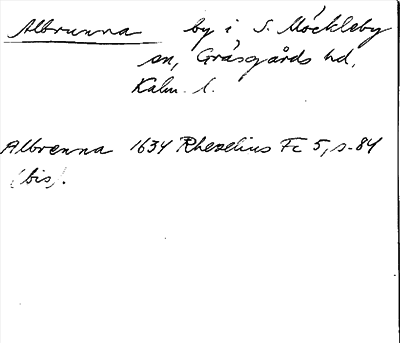 Albrunna by i S. Möckleby
sn, Gräsgårds hd,
Kalm. l.
Albrenna 1634 Rhezelius Fc 5, s. 84
(bis).